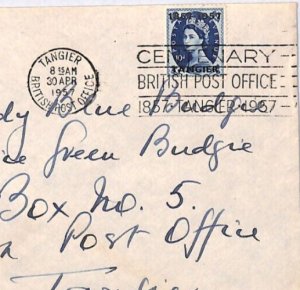 TANGIER
8 15 AM
30 APR
1957
BRITISH POST OFFICE
1857-1957
TANGIER
CENTENARY
BRITISH POST OFFICE
1857 TANGIER 1957
dy Blue Budgie
Green Budgie
Box No. 5.
Post Office